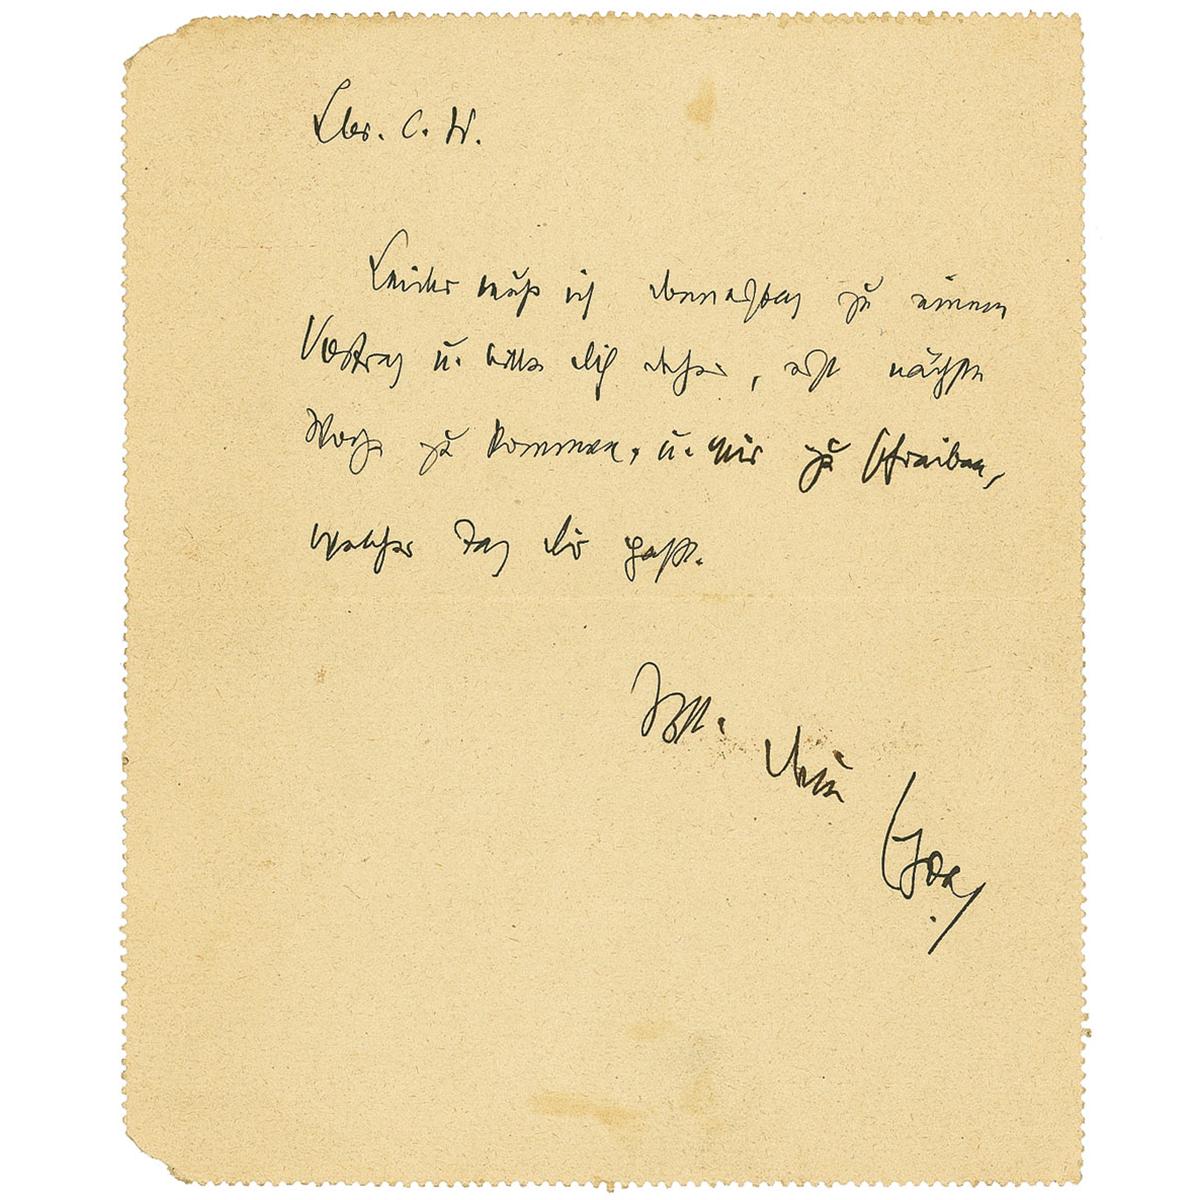 Lber. C. W.
Leider muß ich donnerstag zu einem
Vortrag u. bitte dich daher, erst nächste
Woche zu kommen, u. mir zu schreiben,
welcher Tag dir paßt.
dein